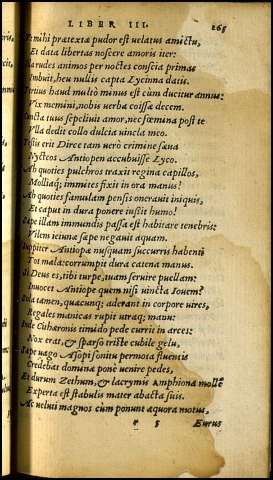 LIBER III. 268
mihi prætextæ pudor est velatus amictu,
Et data libertas noscere amoris iter:
rudes animos per noctes conscia primas
Imbuit, heu nullis capta Lycinna datis.
Tertius haud multò minus est cùm ducitur annus:
Vix memini, nobis verba coisse decem.
Cuncta tuus sepelivit amor, nec fœmina post te
Vlla dedit collo dulcia vincla meo.
Testis erit Dirce tam verò crimine sæva
Nycteos Antiopen accubuisse Lyco.
Ah quoties pulchros traxit regina capillos,
Molliaq; immites fixit in ora manus!
Ah quoties famulam pensis oneravit iniquis,
Et caput in dura ponere iussit humo!
Sæpe illam immundis passa est habitare tenebris:
Vilem ieiunæ sæpe negavit aquam.
Iuppiter Antiopæ nusquam succurris habenti
Tot mala: corrumpit dura catena manus.
Si Deus es, tibi turpe, tuam servire puellam:
Invocet Antiope quem nisi vincta Iovem?
Sola tamen, quacunq; aderant in corpore vires,
Regales manicas rupit utraq; manu:
Inde Cithæronis timido pede currit in arces:
Nox erat, & sparso triste cubile gelu,
Sæpe vago Asopi sonitu permota fluentis
Credebat dominæ ponè venire pedes,
Et durum Zethum, & lacrymis Amphiona mollē
Experta est stabulis mater abacta suis.
Ac veluti magnos cùm ponunt æquora motus,
r 5 Eurus